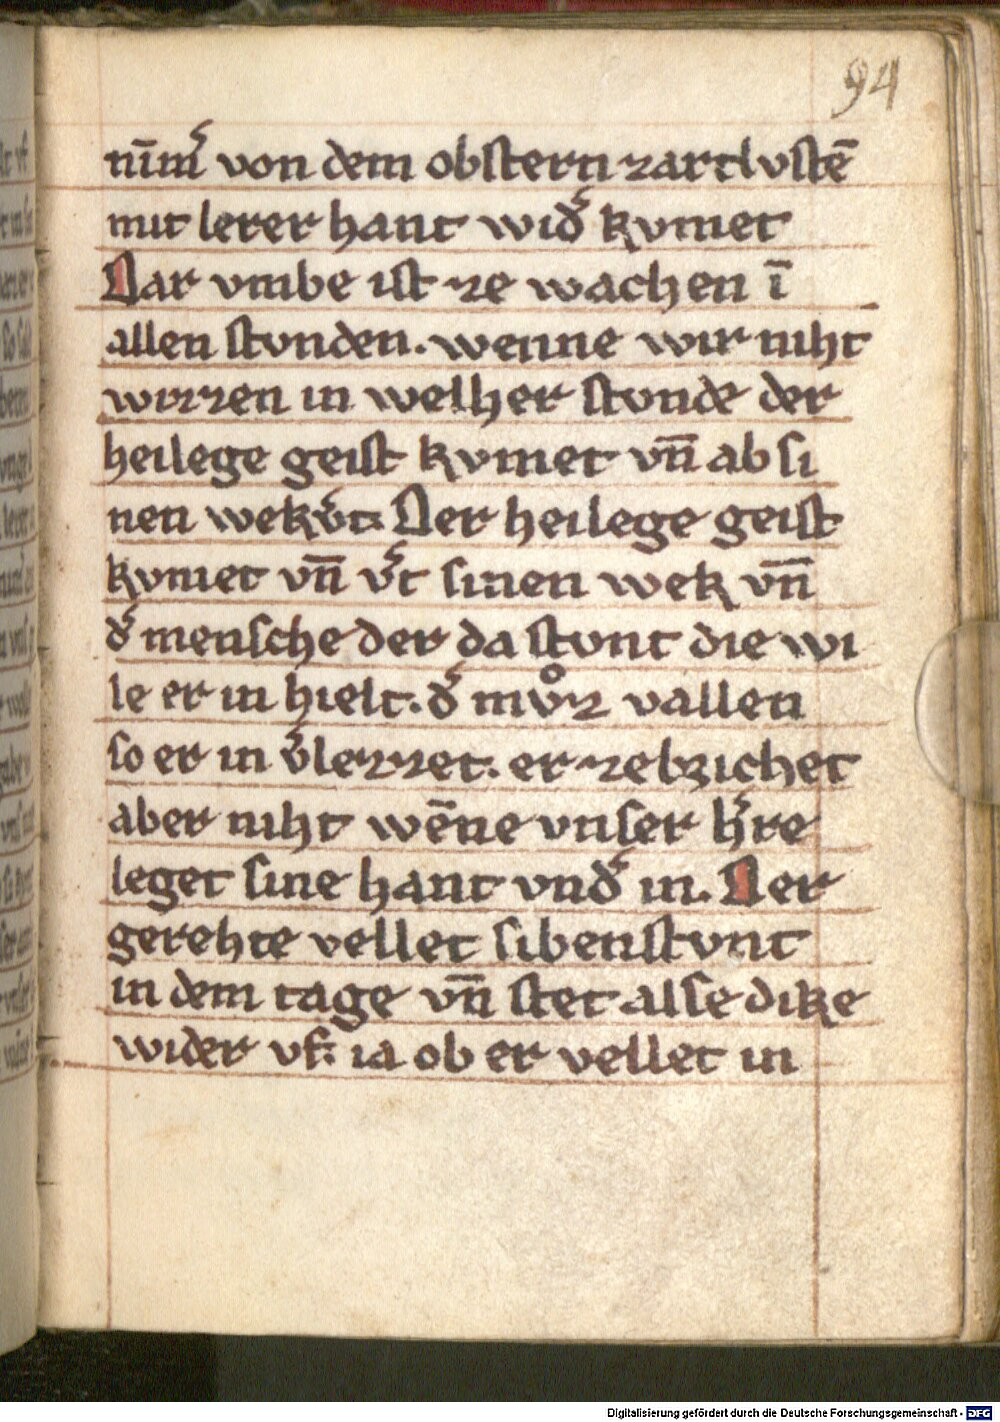 94
nim̄͛ von dem obſtern zartlvſtē
mit lerer hant wid͛ kvmet
Dar vmbe iſt ze wachen ī
allen ſtvnden. wenne wir niht
wizzen in welher ſtvnde der
heilege geiſt kvmet vn̄ ab ſi
nen wek v͛t. Der heilege geiſt
kvmet vn̄ v͛t ſinen wek vn̄
d͛ menſche der da ſtvnt die wi
le er in hielt. d͛ mvͦz vallen
ſo er in v͛lezzet. er zebrichet
aber niht wēne vnſer h͛re
leget ſine hant vnd͛ in. Der
gerehte vellet ſibenſtvnt
in dem tage vn̄ ſtet alſe dike
wider vf. ia ob er vellet in
Digitalisierung gefördert durch die Deutsche Forschungsgemeinschaft - DFG